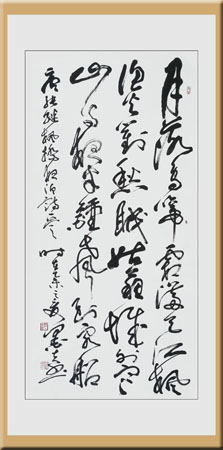 月落烏啼霜滿天江楓
漁火對愁眠姑蘇城外寒
山寺夜半鐘聲到客船
唐張繼楓橋夜泊詩